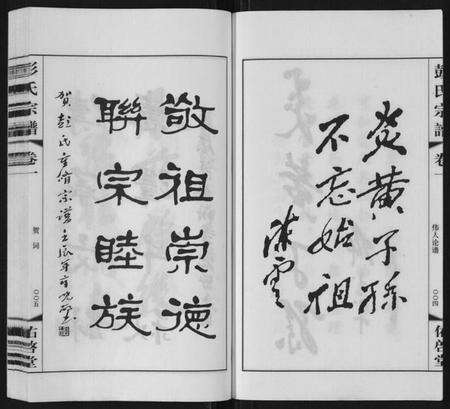 彭氏宗譜
卷一
伟人论谱
〇〇四
佑啓堂
炎黄子孫
不忘始祖
陳雲
敬祖崇德
聯宗睦族
賀彭氏重修宗譜
彭氏宗譜
卷一
贺词
〇〇五
佑啓堂